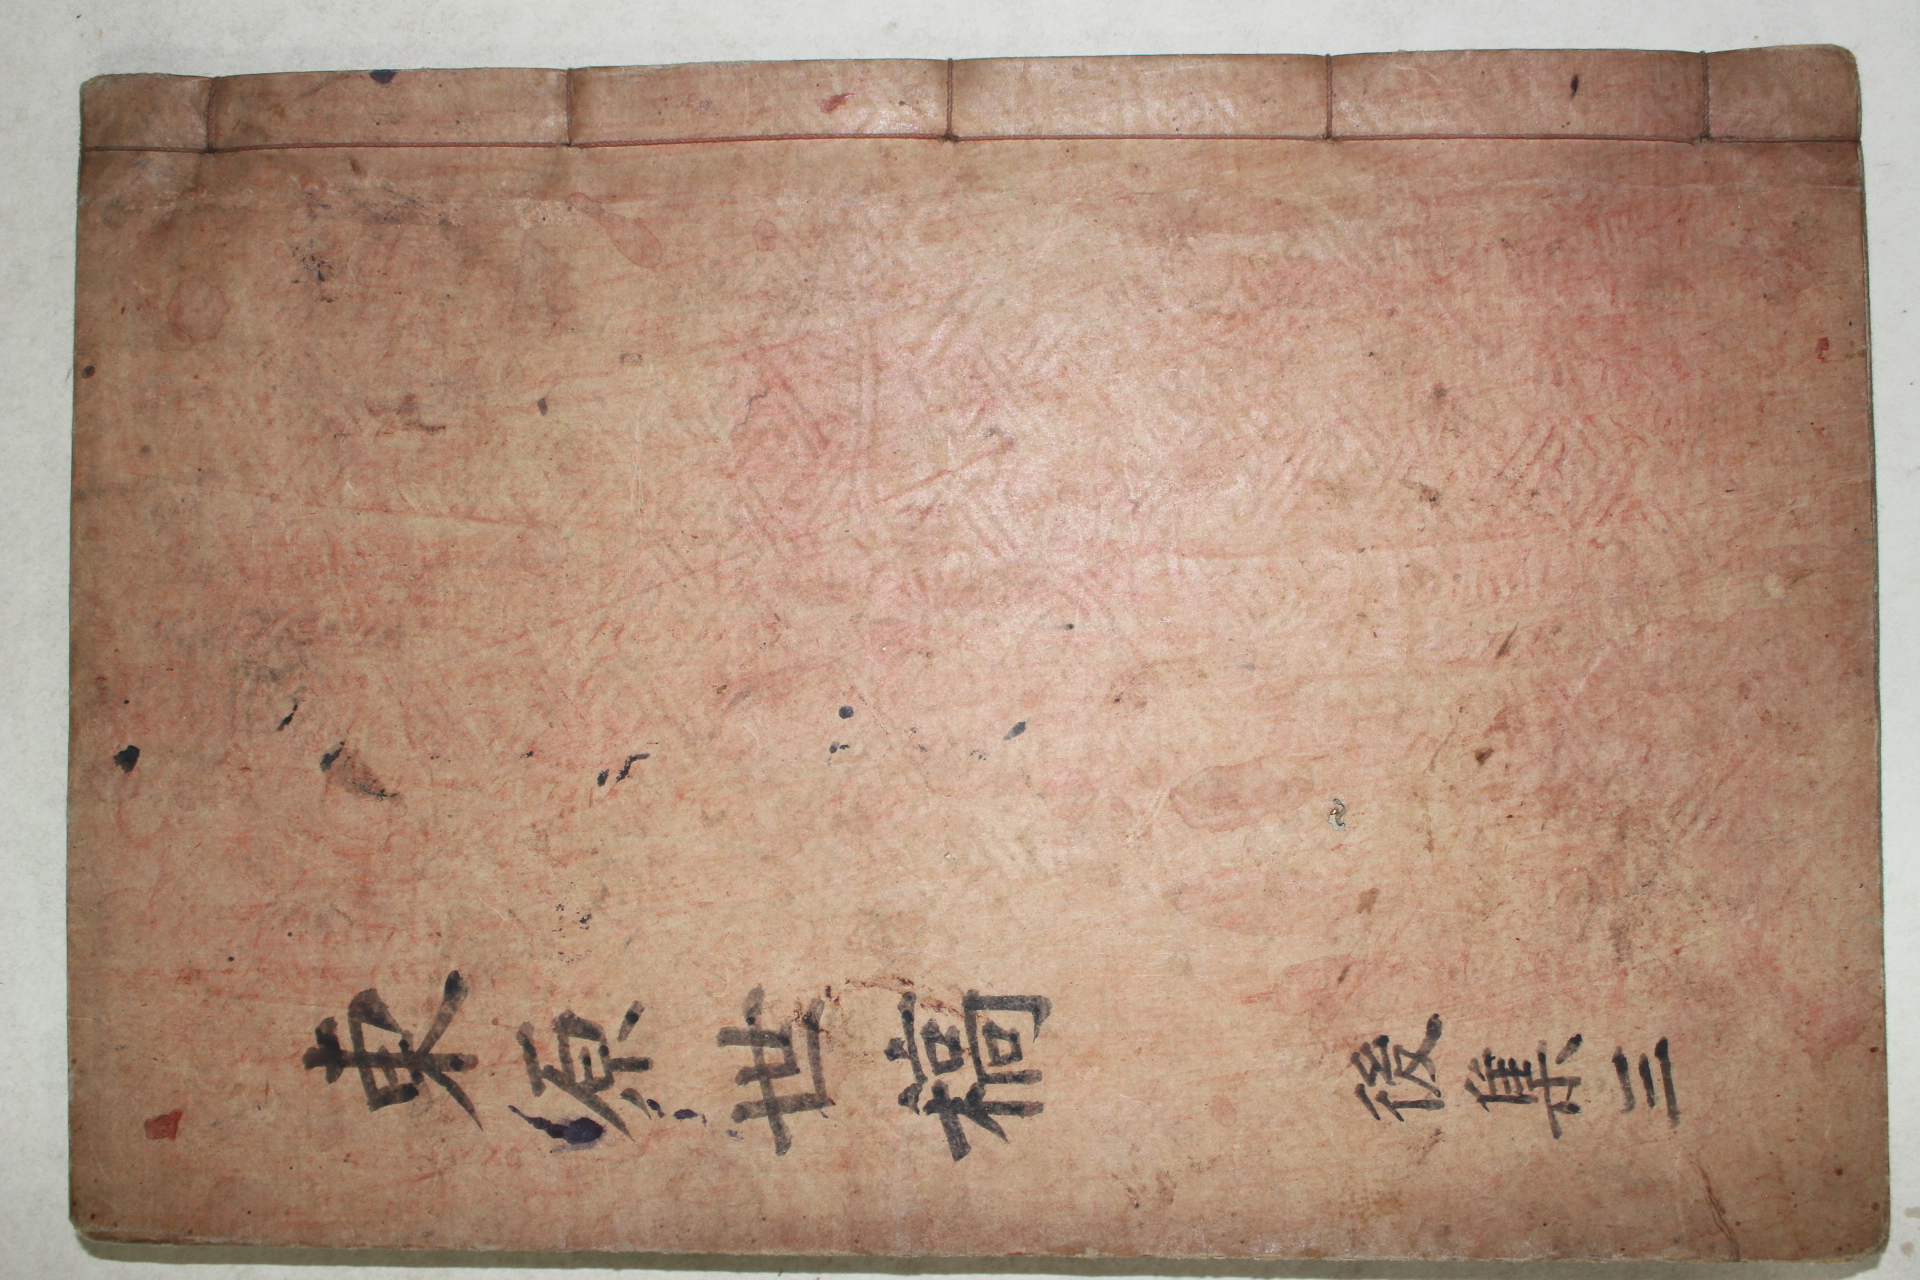 東原世稿
後集三